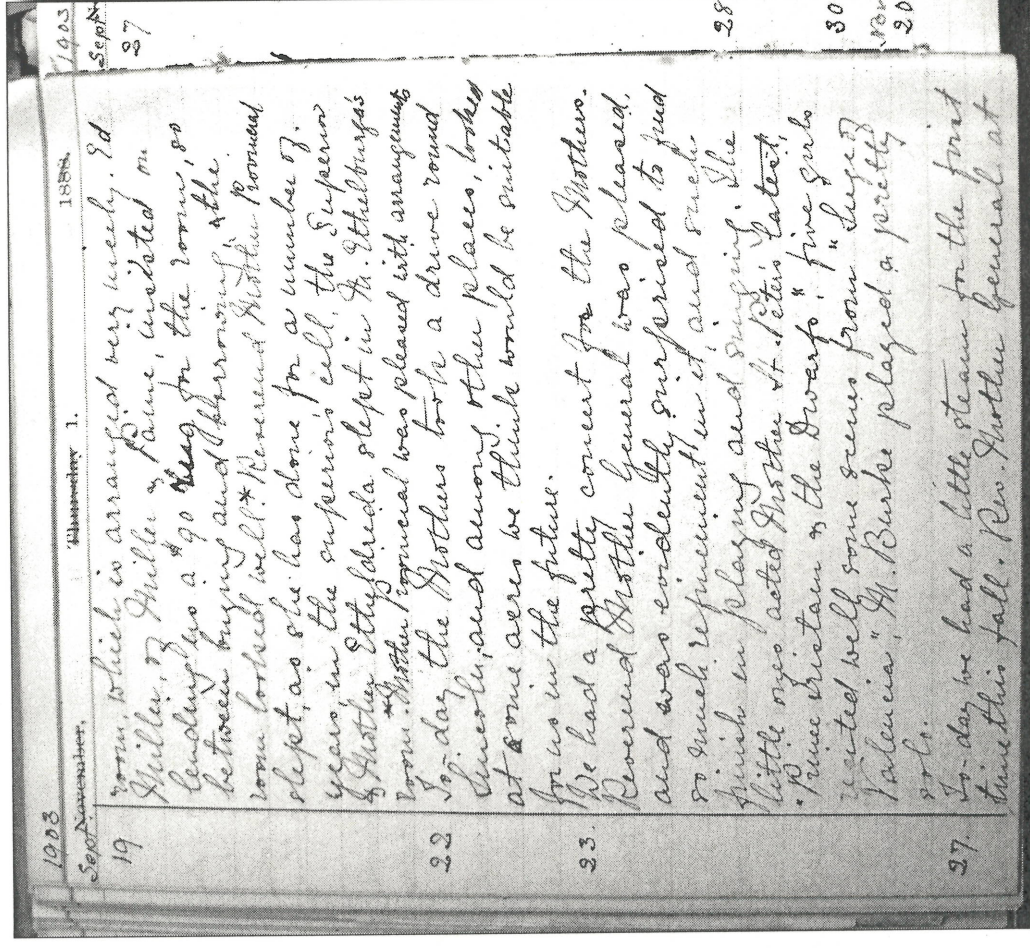 1903
Sept. November. Thursday 1. 1888.
19 room, which is arranged very nicely. Ed
Miller, of Miller & Paine, insisted on
lending us a $90 rug for the room, so
between buying and borrowing the
room looked well.* Reverend Mother Provincial
slept, as she has done for a number of
years, in the superior's cell, the Superior
& Mother Etheldreda slept in M. Ethelburga's
room. *Mother Provincial was pleased with arrangements
22 To-day the Mothers took a drive round
Lincoln, and among other places, looked
at some acres we think would be suitable
for us in the future.
23. We had a pretty concert for the Mothers.
Reverend Mother General was pleased,
and was evidently surprised to find
so much "refinement" in it, and such
finish in playing and singing. The
little ones acted Mother St. Peter's latest,
"Prince Tristan & the Dwarfs," five girls
recited well some scenes from "Siege of
Valencia," M. Burke played a pretty
solo.
27. To-day we had a little steam for the first
time this fall. Rev. Mother General at
1903
Sept
27
28
30
Nov
20